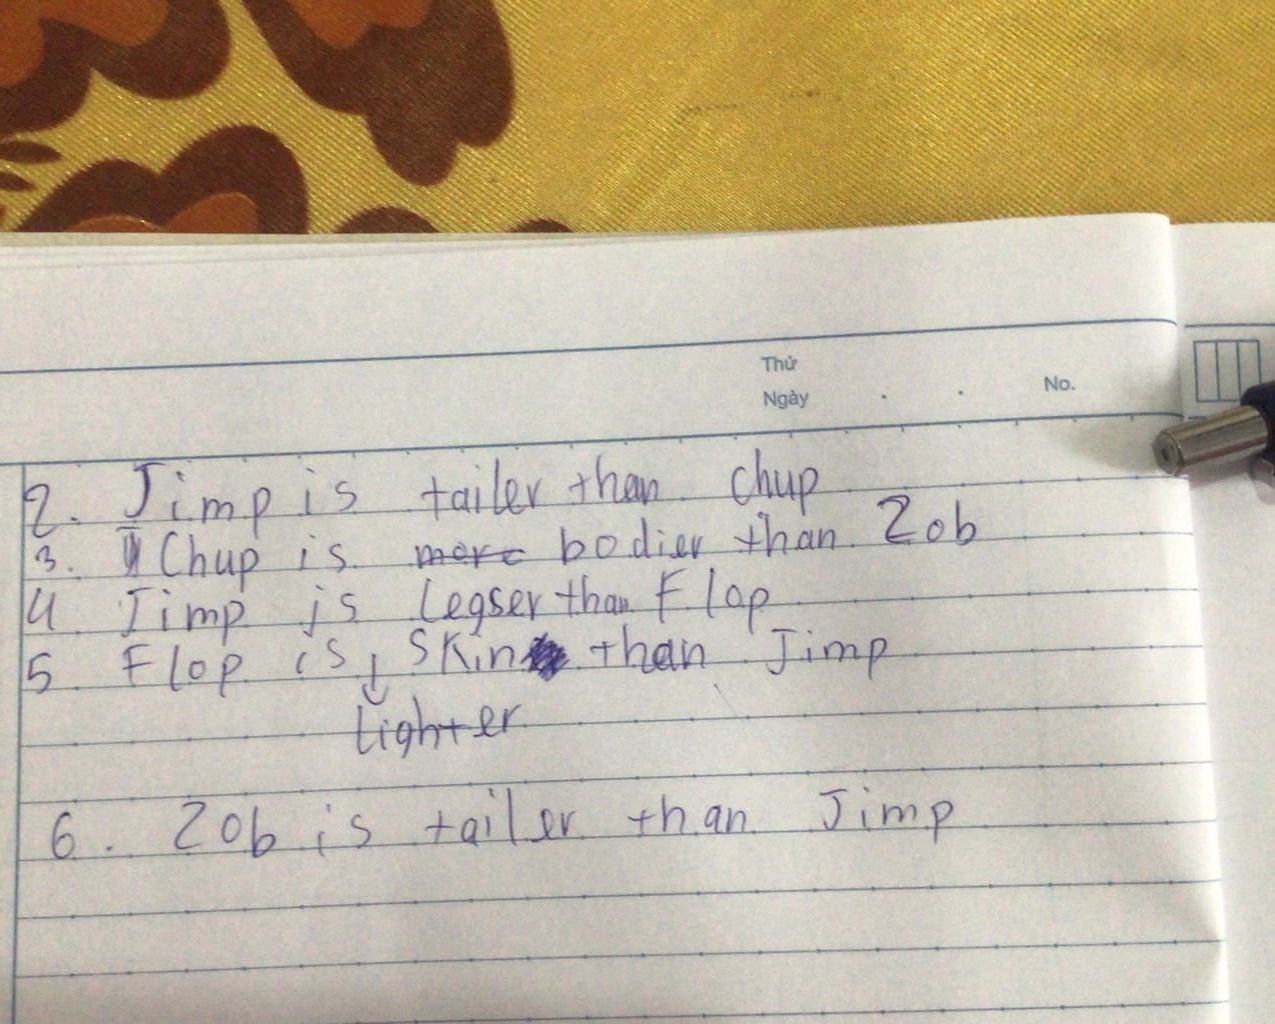 Thứ
Ngày . . No.
2. Jimp is tailer than Chup
3. Chup is more bodier than Zob
4 Jimp is Legser than Flop
5 Flop is skin than Jimp
Lighter
6. Zob is tailer than Jimp